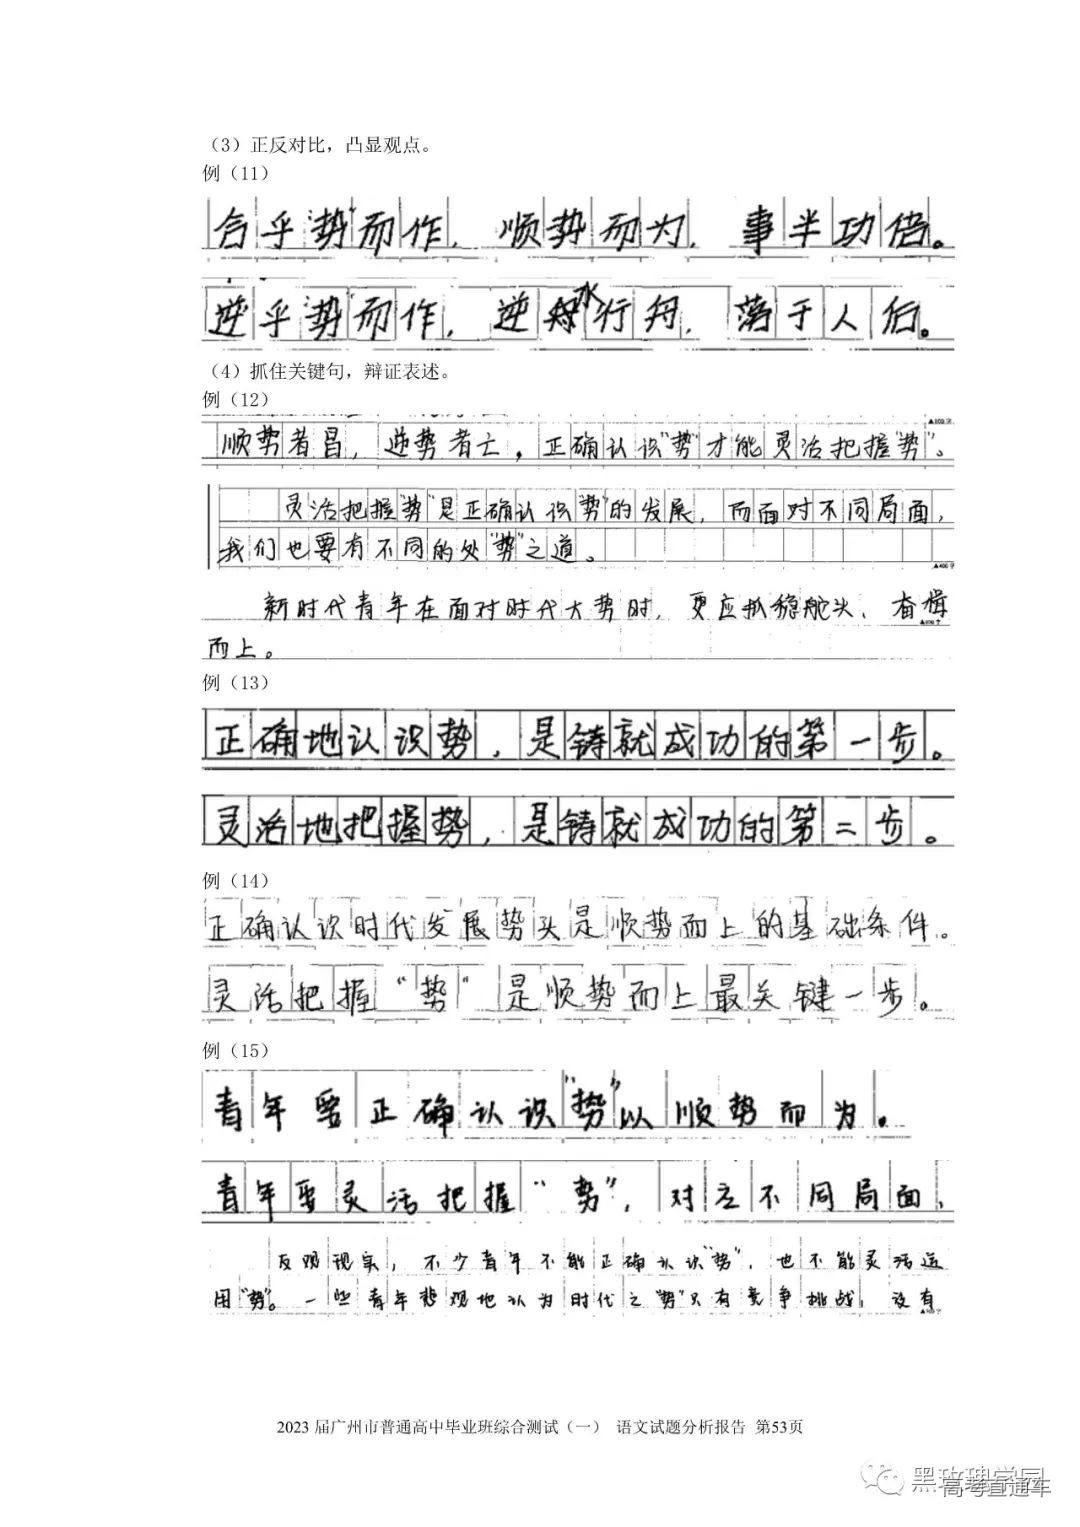 （3）正反对比，凸显观点。
例（11）
合乎“势”而作，顺势而为，事半功倍。
逆乎“势”而作，逆水行舟，落于人后。
（4）抓住关键句，辩证表述。
例（12）
顺势者昌，逆势者亡，正确认识“势”才能灵活把握“势”。
灵活把握“势”是正确认识“势”的发展，而面对不同局面，
我们也要有不同的处“势”之道。
新时代青年在面对时代大势时，更应抓稳舵头、奋楫
而上。
例（13）
正确地认识势，是铸就成功的第一步。
灵活地把握势，是铸就成功的第二步。
例（14）
正确认识时代发展势头是顺势而上的基础条件。
灵活把握“势”是顺势而上最关键一步。
例（15）
青年要正确认识“势”以顺势而为。
青年要灵活把握“势”，对应不同局面，
反观现实，不少青年不能正确认识“势”，也不能灵活运
用“势”。一些青年悲观地认为时代之“势”只有竞争挑战，没有
2023 届广州市普通高中毕业班综合测试（一） 语文试题分析报告 第53页
黑玫瑰学园
高考直通车